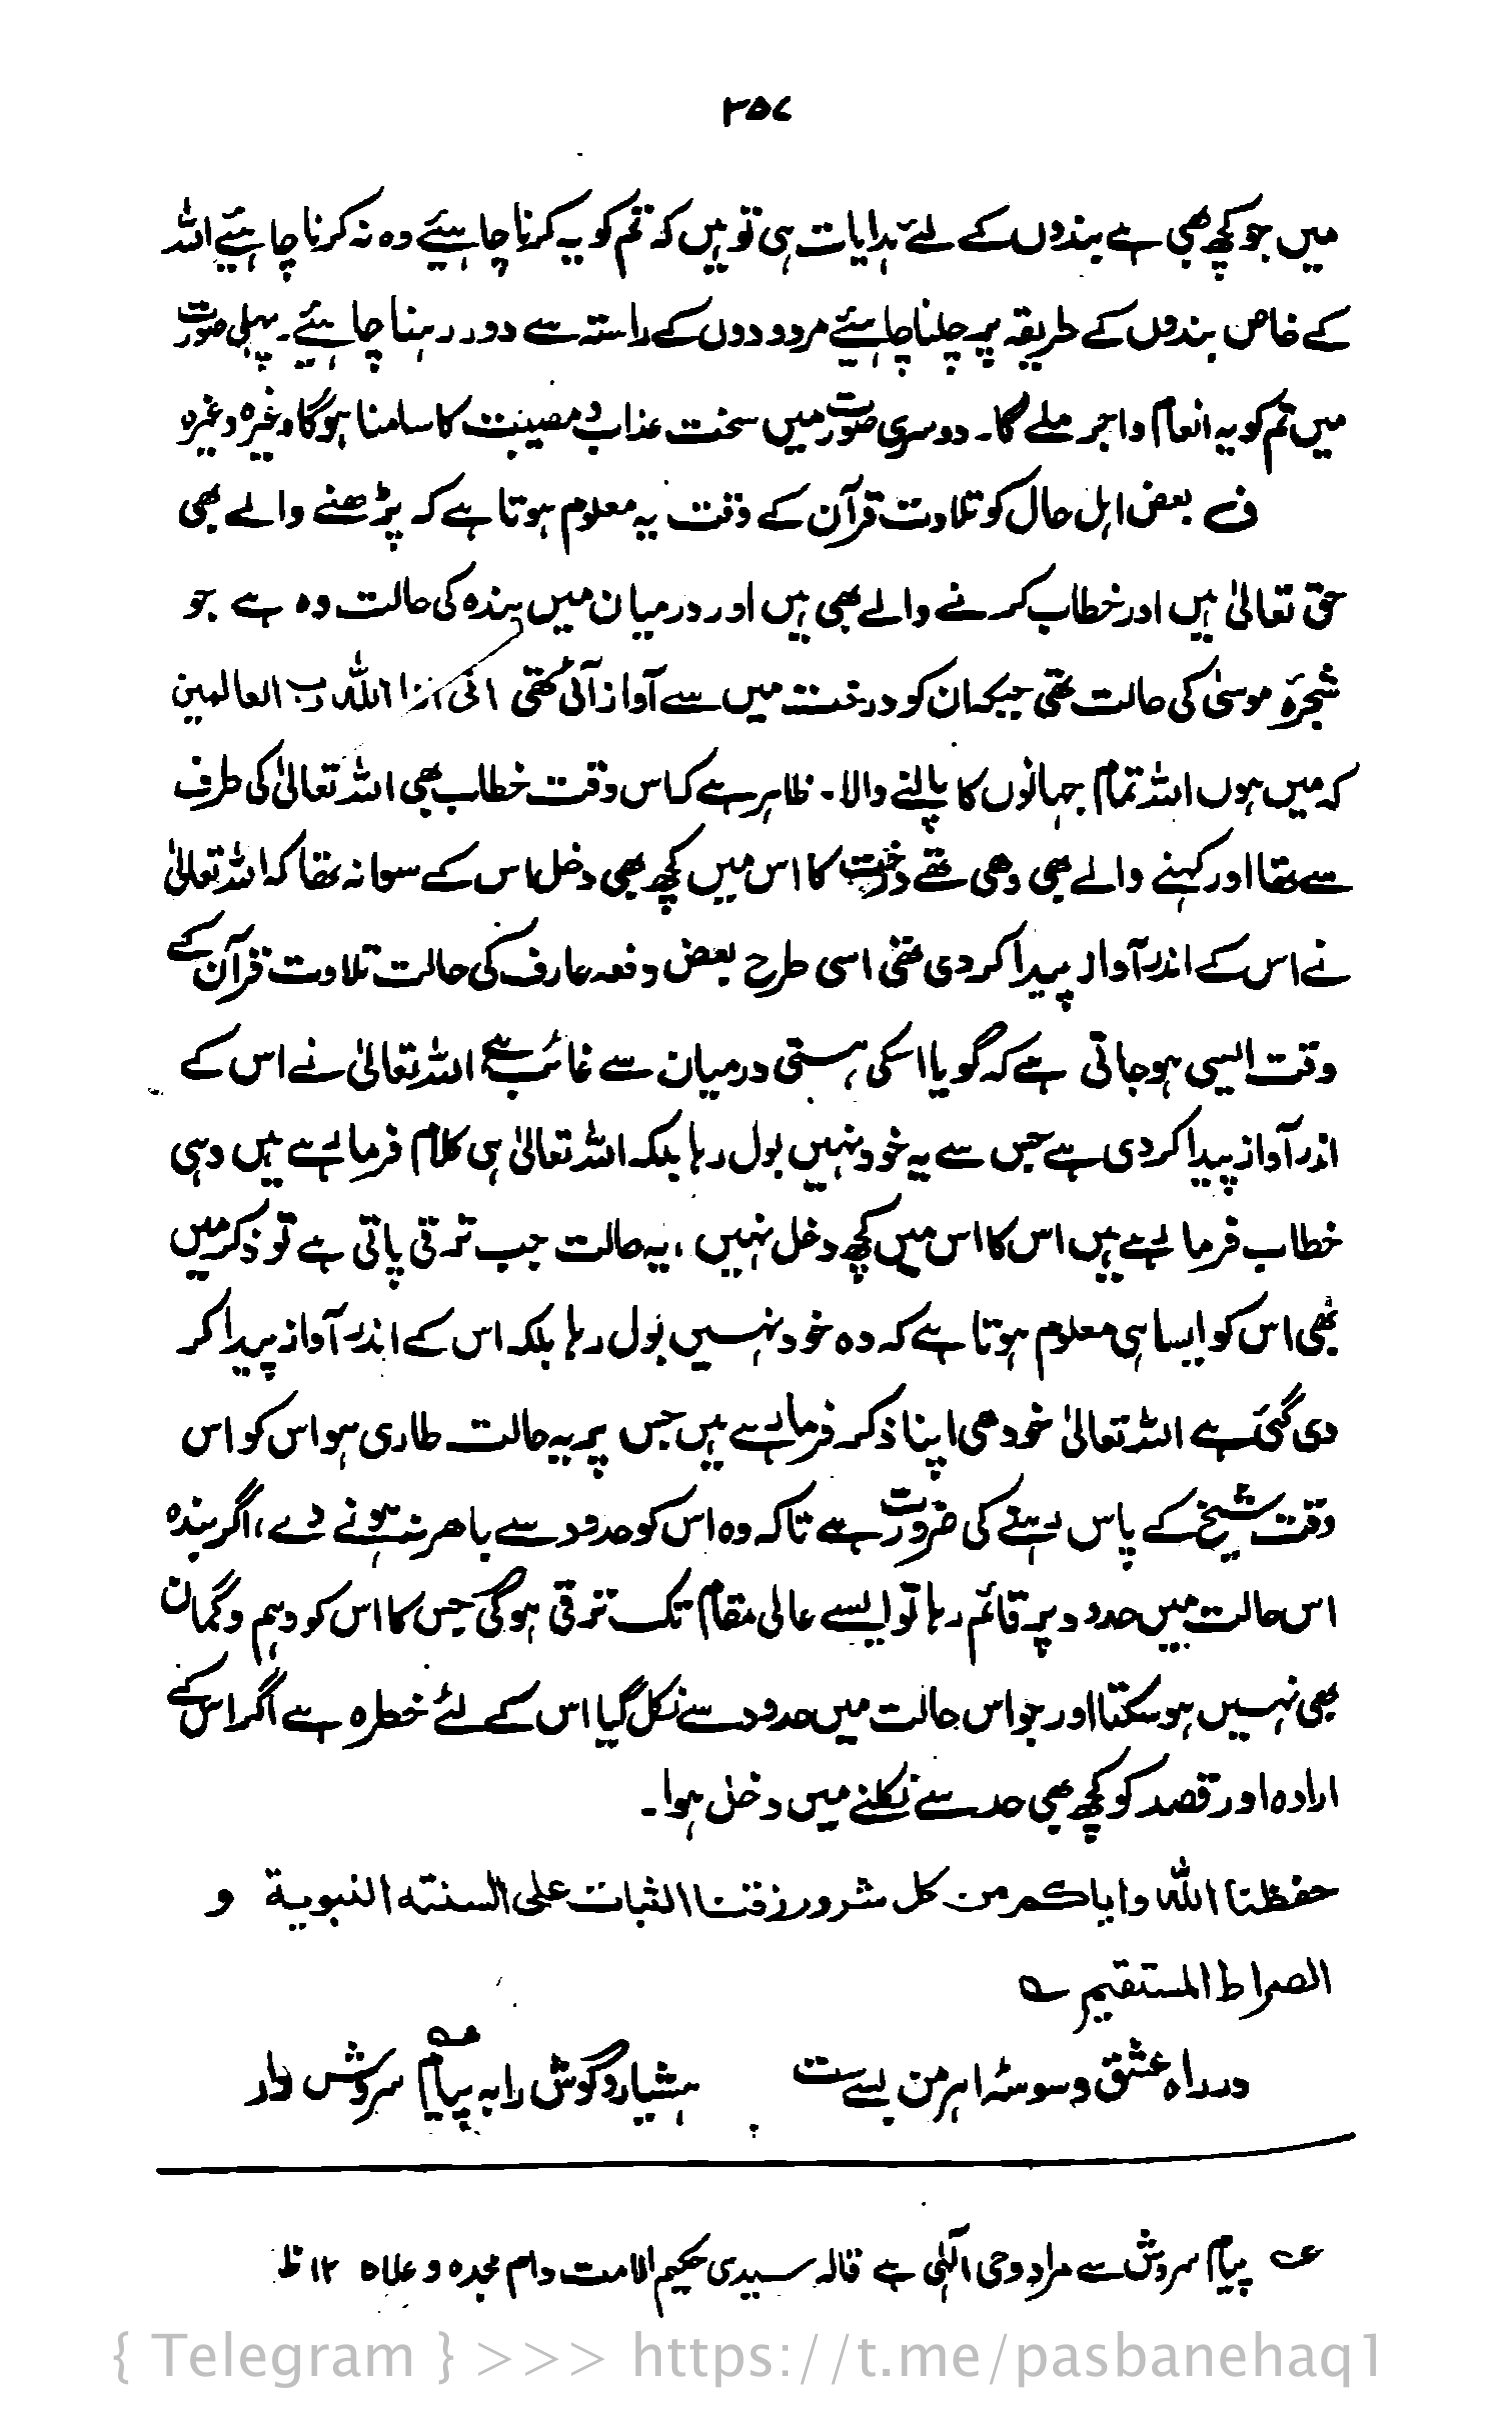 ۳۵۷
میں جو کچھ بھی ہے بندوں کے لئے ہدایات ہی تو ہیں کہ تم کو یہ کرنا چاہیئے وہ نہ کرنا چاہیئے اللہ
کے خاص بندوں کے طریقہ پر چلنا چاہیئے مردودوں کے راستہ سے دور رہنا چاہئیے۔ پہلی صورت
میں تم کو یہ انعام واجر ملے گا۔ دوسری صورت میں سخت عذاب و مصیبت کا سامنا ہوگا وغیرہ وغیرہ
ف بعض اہل حال کو تلاوت قرآن کے وقت یہ معلوم ہوتا ہے کہ پڑھنے والے بھی
حق تعالیٰ ہیں اور خطاب کرنے والے بھی ہیں اور درمیان میں بندہ کی حالت وہ ہے جو
شجرۂ موسیٰ کی حالت تھی جبکہ ان کو درخت میں سے آواز آئی تھی انی انا اللہ رب العالمین
کہ میں ہوں اللہ تمام جہانوں کا پالنے والا۔ ظاہر ہے کہ اس وقت خطاب بھی اللہ تعالیٰ کی طرف
سے تھا اور کہنے والے بھی وھی تھے درخت کا اس میں کچھ بھی دخل اس کے سوا نہ تھا کہ اللہ تعالیٰ
نے اس کے اندر آواز پیدا کر دی تھی اسی طرح بعض دفعہ عارف کی حالت تلاوت قرآن کے
وقت ایسی ہو جاتی ہے کہ گویا اسکی ہستی درمیان سے غائب ہے اللہ تعالیٰ نے اس کے
اندر آواز پیدا کر دی ہے جس سے یہ خود نہیں بول رہا بلکہ اللہ تعالیٰ ہی کلام فرما رہے ہیں وہی
خطاب فرما رہے ہیں اس کا اس میں کچھ دخل نہیں ، یہ حالت جب ترقی پاتی ہے تو ذکر میں
بھی اس کو ایسا ہی معلوم ہوتا ہے کہ وہ خود نہیں بول رہا بلکہ اس کے اندر آواز پیدا کر
دی گئی ہے اللہ تعالیٰ خود ھی اپنا ذکر فرما رہے ہیں جس پر یہ حالت طاری ہو اس کو اس
وقت شیخ کے پاس رہنے کی ضرورت ہے تاکہ وہ اس کو حدود سے باھر نہ ہونے دے ، اگر بندہ
اس حالت میں حدود پر قائم رہا تو ایسے عالی مقام تک ترقی ہوگی جس کا اس کو وہم وگمان
بھی نہیں ہو سکتا اور جو اس حالت میں حدود سے نکل گیا اس کے لئے خطرہ ہے اگر اس کے
ارادہ اور قصد کو کچھ بھی حد سے نکلنے میں دخل ہوا۔
حفظنا اللہ وایاکم من کل شر ورزقنا الثبات علی السنتہ النبویة و
الصراط المستقیم ے
در راہ عشق وسوسۂ اہرمن بسے ست ہشیار و گوش را بہ پیام سروش دار
عہ پیام سروش سے مراد وحی الٰہی ہے قالہ سیدی حکیم الامت دام مجدہ و علاہ ۱۲ ظ
{ Telegram } >>> https://t.me/pasbanehaq1